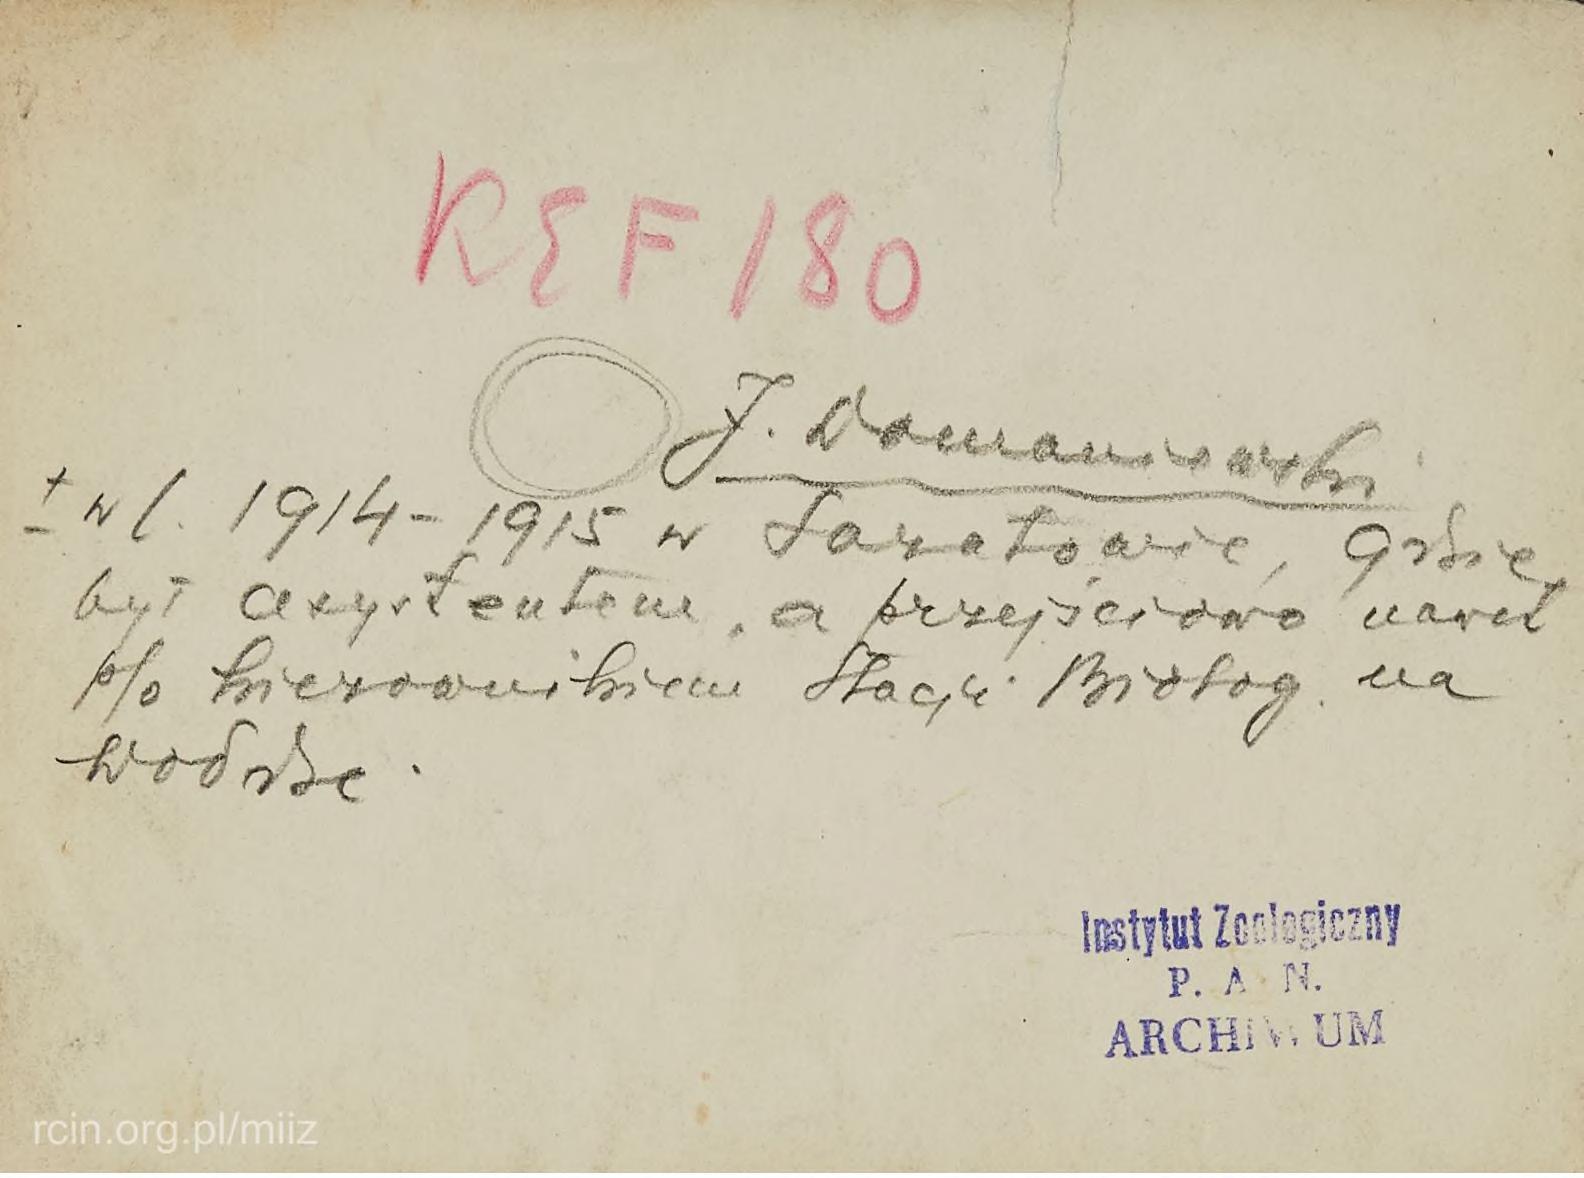 KEF 180
J. Domaniewski
± w l. 1914-1915 w Saratowie, gdzie
był asystentem, a przejściowo nawet
p/o kierownikiem Stacji Biolog. na
Wodze.
Instytut Zoologiczny
P. A. N.
ARCHIWUM
rcin.org.pl/miiz